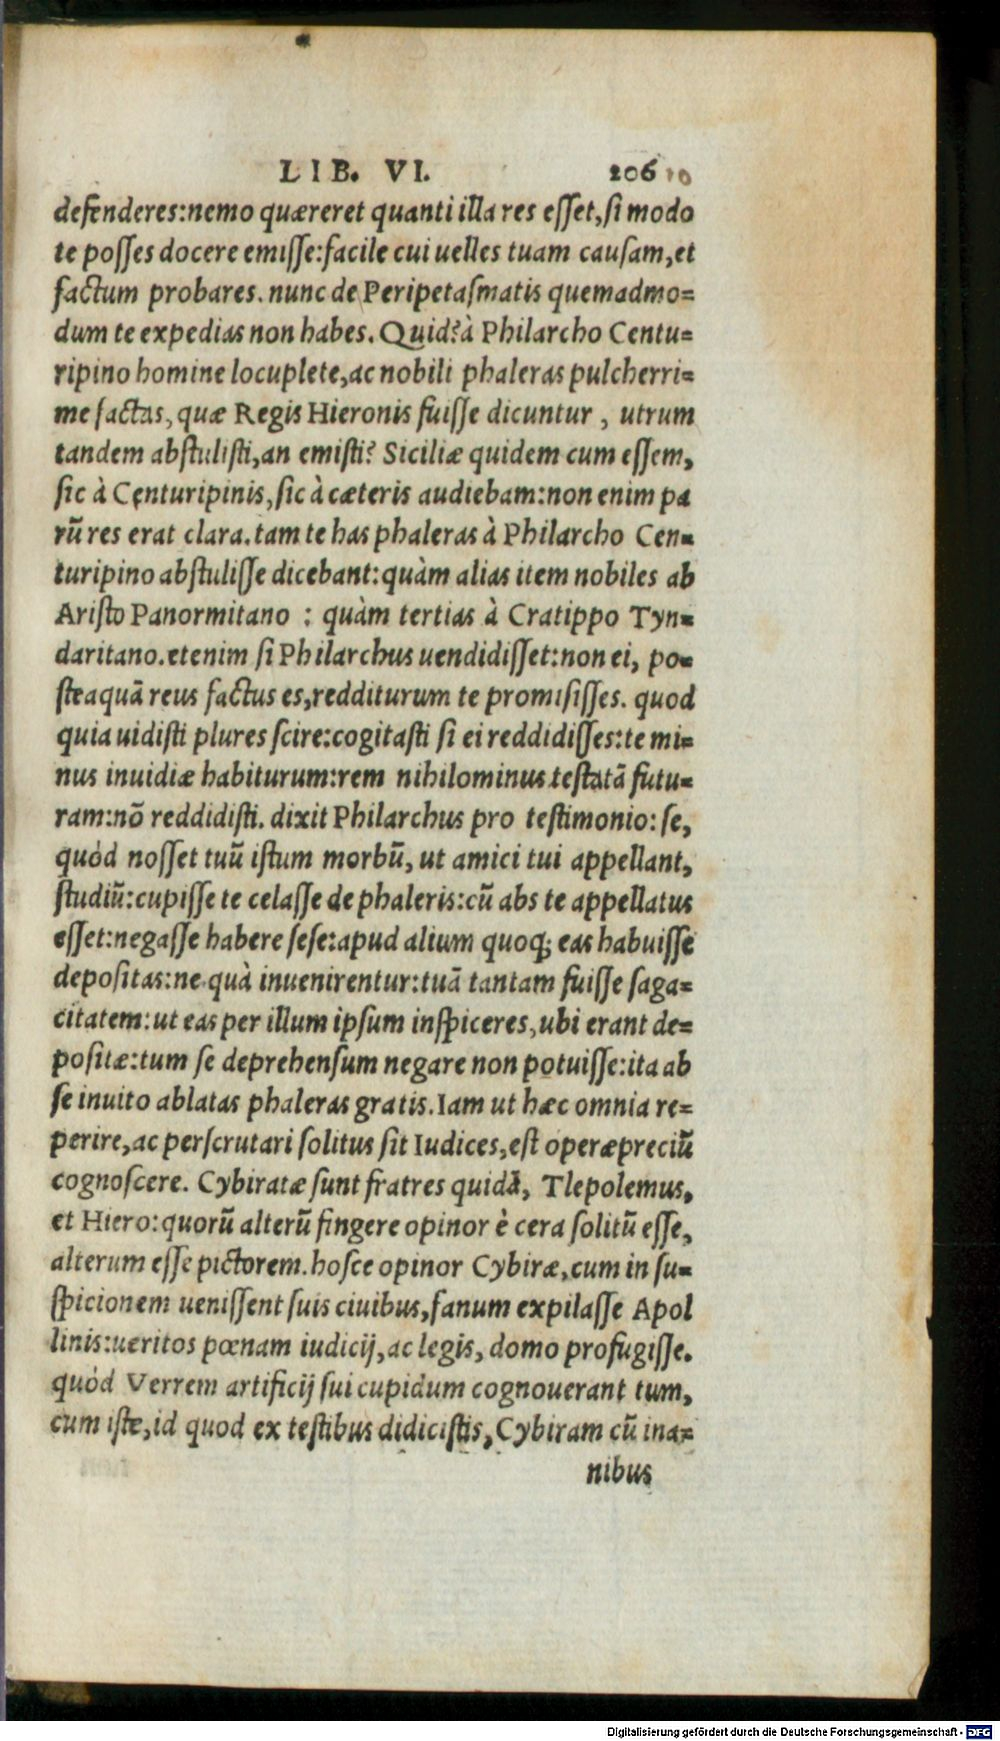 LIB. VI. 206
defenderes:nemo quæreret quanti illa res eſſet,ſi modo
te poſſes docere emiſſe:facile cui uelles tuam cauſam,et
factum probares. nunc de Peripetaſmatis quemadmo=
dum te expedias non habes. Quid?à Philarcho Centu=
ripino homine locuplete,ac nobili phaleras pulcherri=
me factas, quæ Regis Hieronis fuiſſe dicuntur , utrum
tandem abſtuliſti,an emiſti? Siciliæ quidem cum eſſem,
ſic à Centuripinis, ſic à cæteris audiebam:non enim pa
rū res erat clara. tam te has phaleras à Philarcho Cen=
turipino abſtuliſſe dicebant: quàm alias item nobiles ab
Ariſto Panormitano : quàm tertias à Cratippo Tyn=
daritano. etenim ſi Philarchus uendidiſſet:non ei, po=
ſteaquā reus factus es,redditurum te promiſiſſes. quod
quia uidiſti plures ſcire:cogitaſti ſi ei reddidiſſes:te mi=
nus inuidiæ habiturum:rem nihilominus teſtatā futu=
ram:nō reddidiſti. dixit Philarchus pro teſtimonio: ſe,
quòd noſſet tuū iſtum morbū, ut amici tui appellant,
ſtudiū:cupiſſe te celaſſe de phaleris:cū abs te appellatus
eſſet:negaſſe habere ſeſe:apud alium quoq; eas habuiſſe
depoſitas:ne quà inuenirentur:tuā tantam fuiſſe ſaga=
citatem: ut eas per illum ipſum inſpiceres, ubi erant de=
poſitæ:tum ſe deprehenſum negare non potuiſſe:ita ab
ſe inuito ablatas phaleras gratis. Iam ut hæc omnia re=
perire,ac perſcrutari ſolitus ſit Iudices,eſt operæpreciū
cognoſcere. Cybiratæ ſunt fratres quidā, Tlepolemus,
et Hiero:quorū alterū fingere opinor è cera ſolitū eſſe,
alterum eſſe pictorem. hoſce opinor Cybiræ,cum in ſu=
ſpicionem ueniſſent ſuis ciuibus, fanum expilaſſe Apol
linis:ueritos pœnam iudicij, ac legis, domo profugiſſe.
quòd Verrem artificij ſui cupidum cognouerant tum,
cum iſte, id quod ex teſtibus didiciſtis, Cybiram cū ina=
nibus
Digitalisierung gefördert durch die Deutsche Forschungsgemeinschaft - DFG